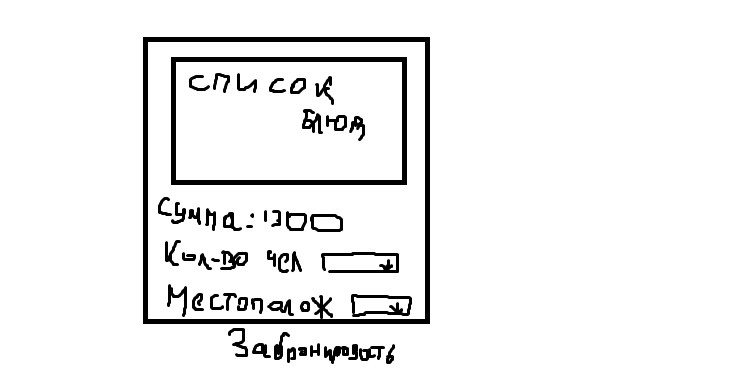 список
блюд
Сумма: 1300
Кол-во чел
Местополож
Забронировать